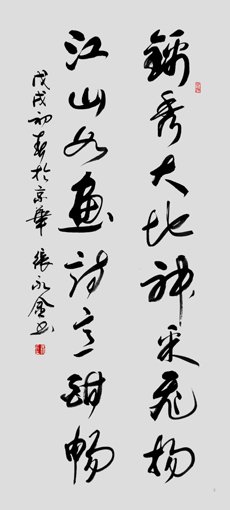 锦秀大地神采飞扬
江山如画诗意酣畅
戊戌初春於京华 張永金书